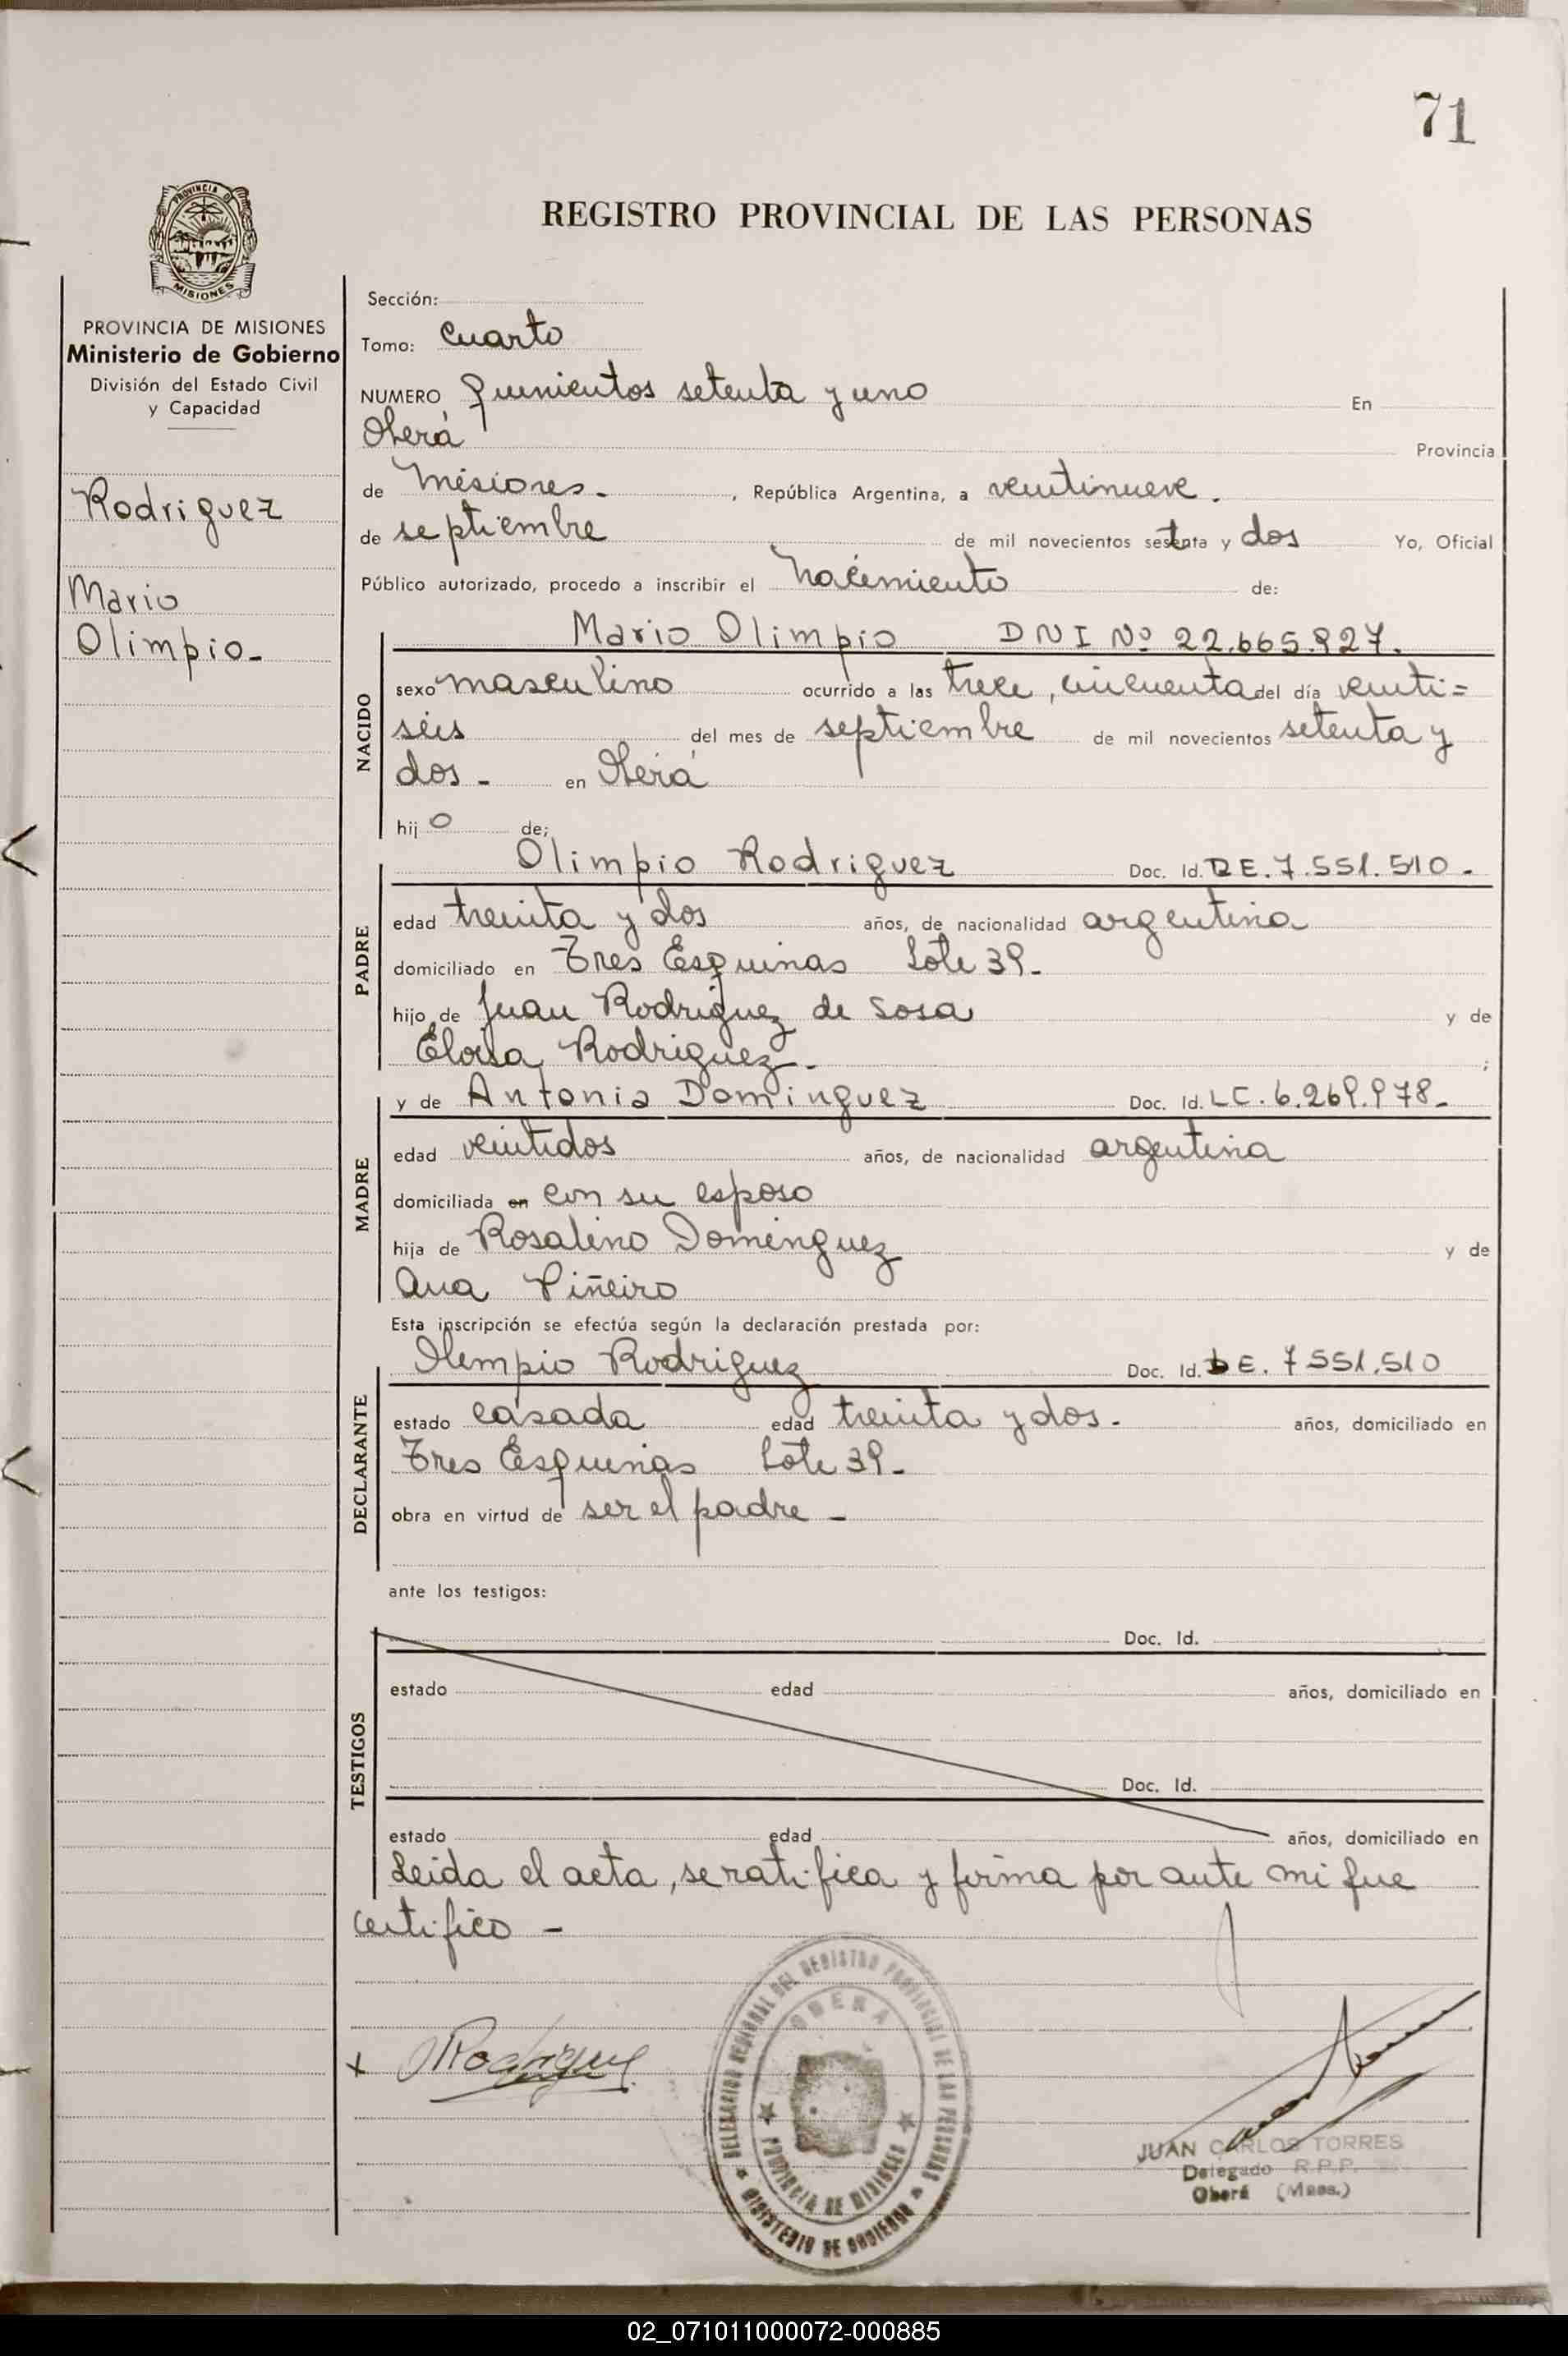 71
PROVINCIA DE
MISIONES
REGISTRO PROVINCIAL DE LAS PERSONAS
PROVINCIA DE MISIONES
Ministerio de Gobierno
División del Estado Civil
y Capacidad
Rodriguez
Mario
Olimpio-
Sección:
Tomo: Cuarto
NUMERO quinientos setenta y uno En
Oberá Provincia
de Misiones- , República Argentina, a veintinueve.
de septiembre de mil novecientos setenta y dos Yo, Oficial
Público autorizado, procedo a inscribir el nacimiento de:
NACIDO
Mario Olimpio DNI Nº 22.665.827.
sexo masculino ocurrido a las trece, cincuenta del día veinti=
séis del mes de septiembre de mil novecientos setenta y
dos - en Oberá
hijo de;
PADRE
Olimpio Rodriguez Doc. Id. DE. 7.551.510-
edad treinta y dos años, de nacionalidad argentina
domiciliado en Tres Esquinas Lote 39-
hijo de Juan Rodriguez de Sosa y de
Eloisa Rodriguez- ;
MADRE
y de Antonia Dominguez Doc. Id. LC. 6.269.978-
edad veintidos años, de nacionalidad argentina
domiciliada en con su esposo
hija de Rosalino Dominguez y de
Ana Piñeiro
Esta inscripción se efectúa según la declaración prestada por:
DECLARANTE
Olimpio Rodriguez Doc. Id. DE. 7551.510
estado casada edad treinta y dos- años, domiciliado en
Tres Esquinas Lote 39-
obra en virtud de ser el padre -
ante los testigos:
TESTIGOS
Doc. Id.
estado edad años, domiciliado en
Doc. Id.
estado edad años, domiciliado en
Leida el acta, se ratifica y firma por ante mi que
certifico -
x ORodriguez
DELEGACION REGIONAL DEL REGISTRO PROVINCIAL DE LAS PERSONAS
OBERA
PROVINCIA DE MISIONES
MINISTERIO DE GOBIERNO
JUAN CARLOS TORRES
Delegado R.P.P.
Oberá (Mnes.)
02_071011000072-000885